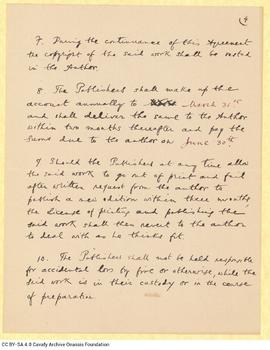 4
7. During the continuance of this Agreement
the copyright of the said work shall be vested
in the Author.
8. The Publishers shall make up the
account annually to March 31st
and shall deliver the same to the Author
within two months thereafter and pay the
sums due to the author on June 30th
9. Should the Publishers at any time allow
the said work to go out of print and fail
after written request from the author to
publish a new edition within three months
the license of printing and publishing the
said work shall then revert to the author
to deal with as he thinks fit.
10. The Publishers shall not be held responsible
for accidental loss by fire or otherwise, while the
said work is in their custody or in the course
of preparation.
CC BY-SA 4.0 Cavafy Archive Onassis Foundation